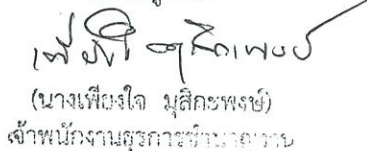 (นางเพียงใจ มุสิกะพงษ์)
เจ้าพนักงานธุรการชำนาญงาน